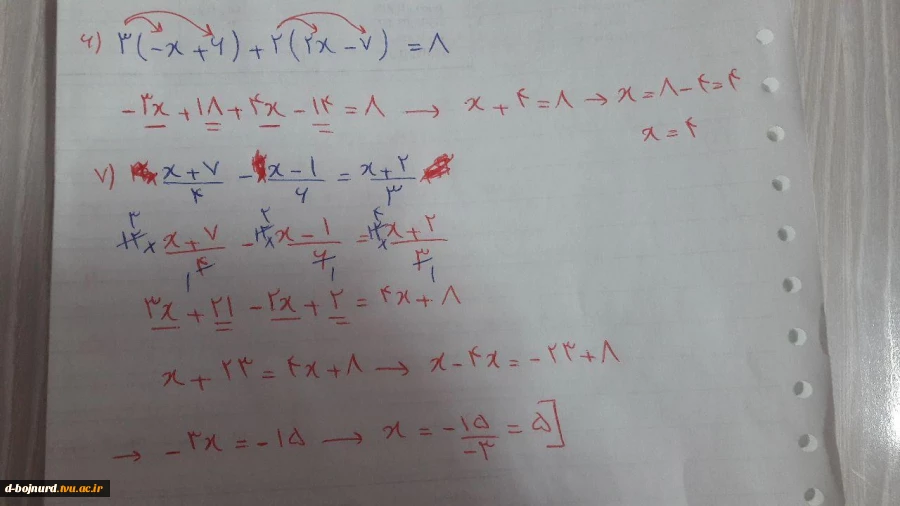 ۶) ۳(-x+۶)+۲(۲x-۷)=۸
-۳x+۱۸+۴x-۱۴=۸ → x+۴=۸ → x=۸-۴=۴
x=۴
۷) (x+۷)/۴ - (x-۱)/۶ = (x+۲)/۳
۱۲×(x+۷)/۴ - ۱۲×(x-۱)/۶ = ۱۲×(x+۲)/۳
۳x+۲۱-۲x+۲=۴x+۸
x+۲۳=۴x+۸ → x-۴x=-۲۳+۸
→ -۳x=-۱۵ → x=-۱۵/-۳=۵]
d-bojnurd.tvu.ac.ir